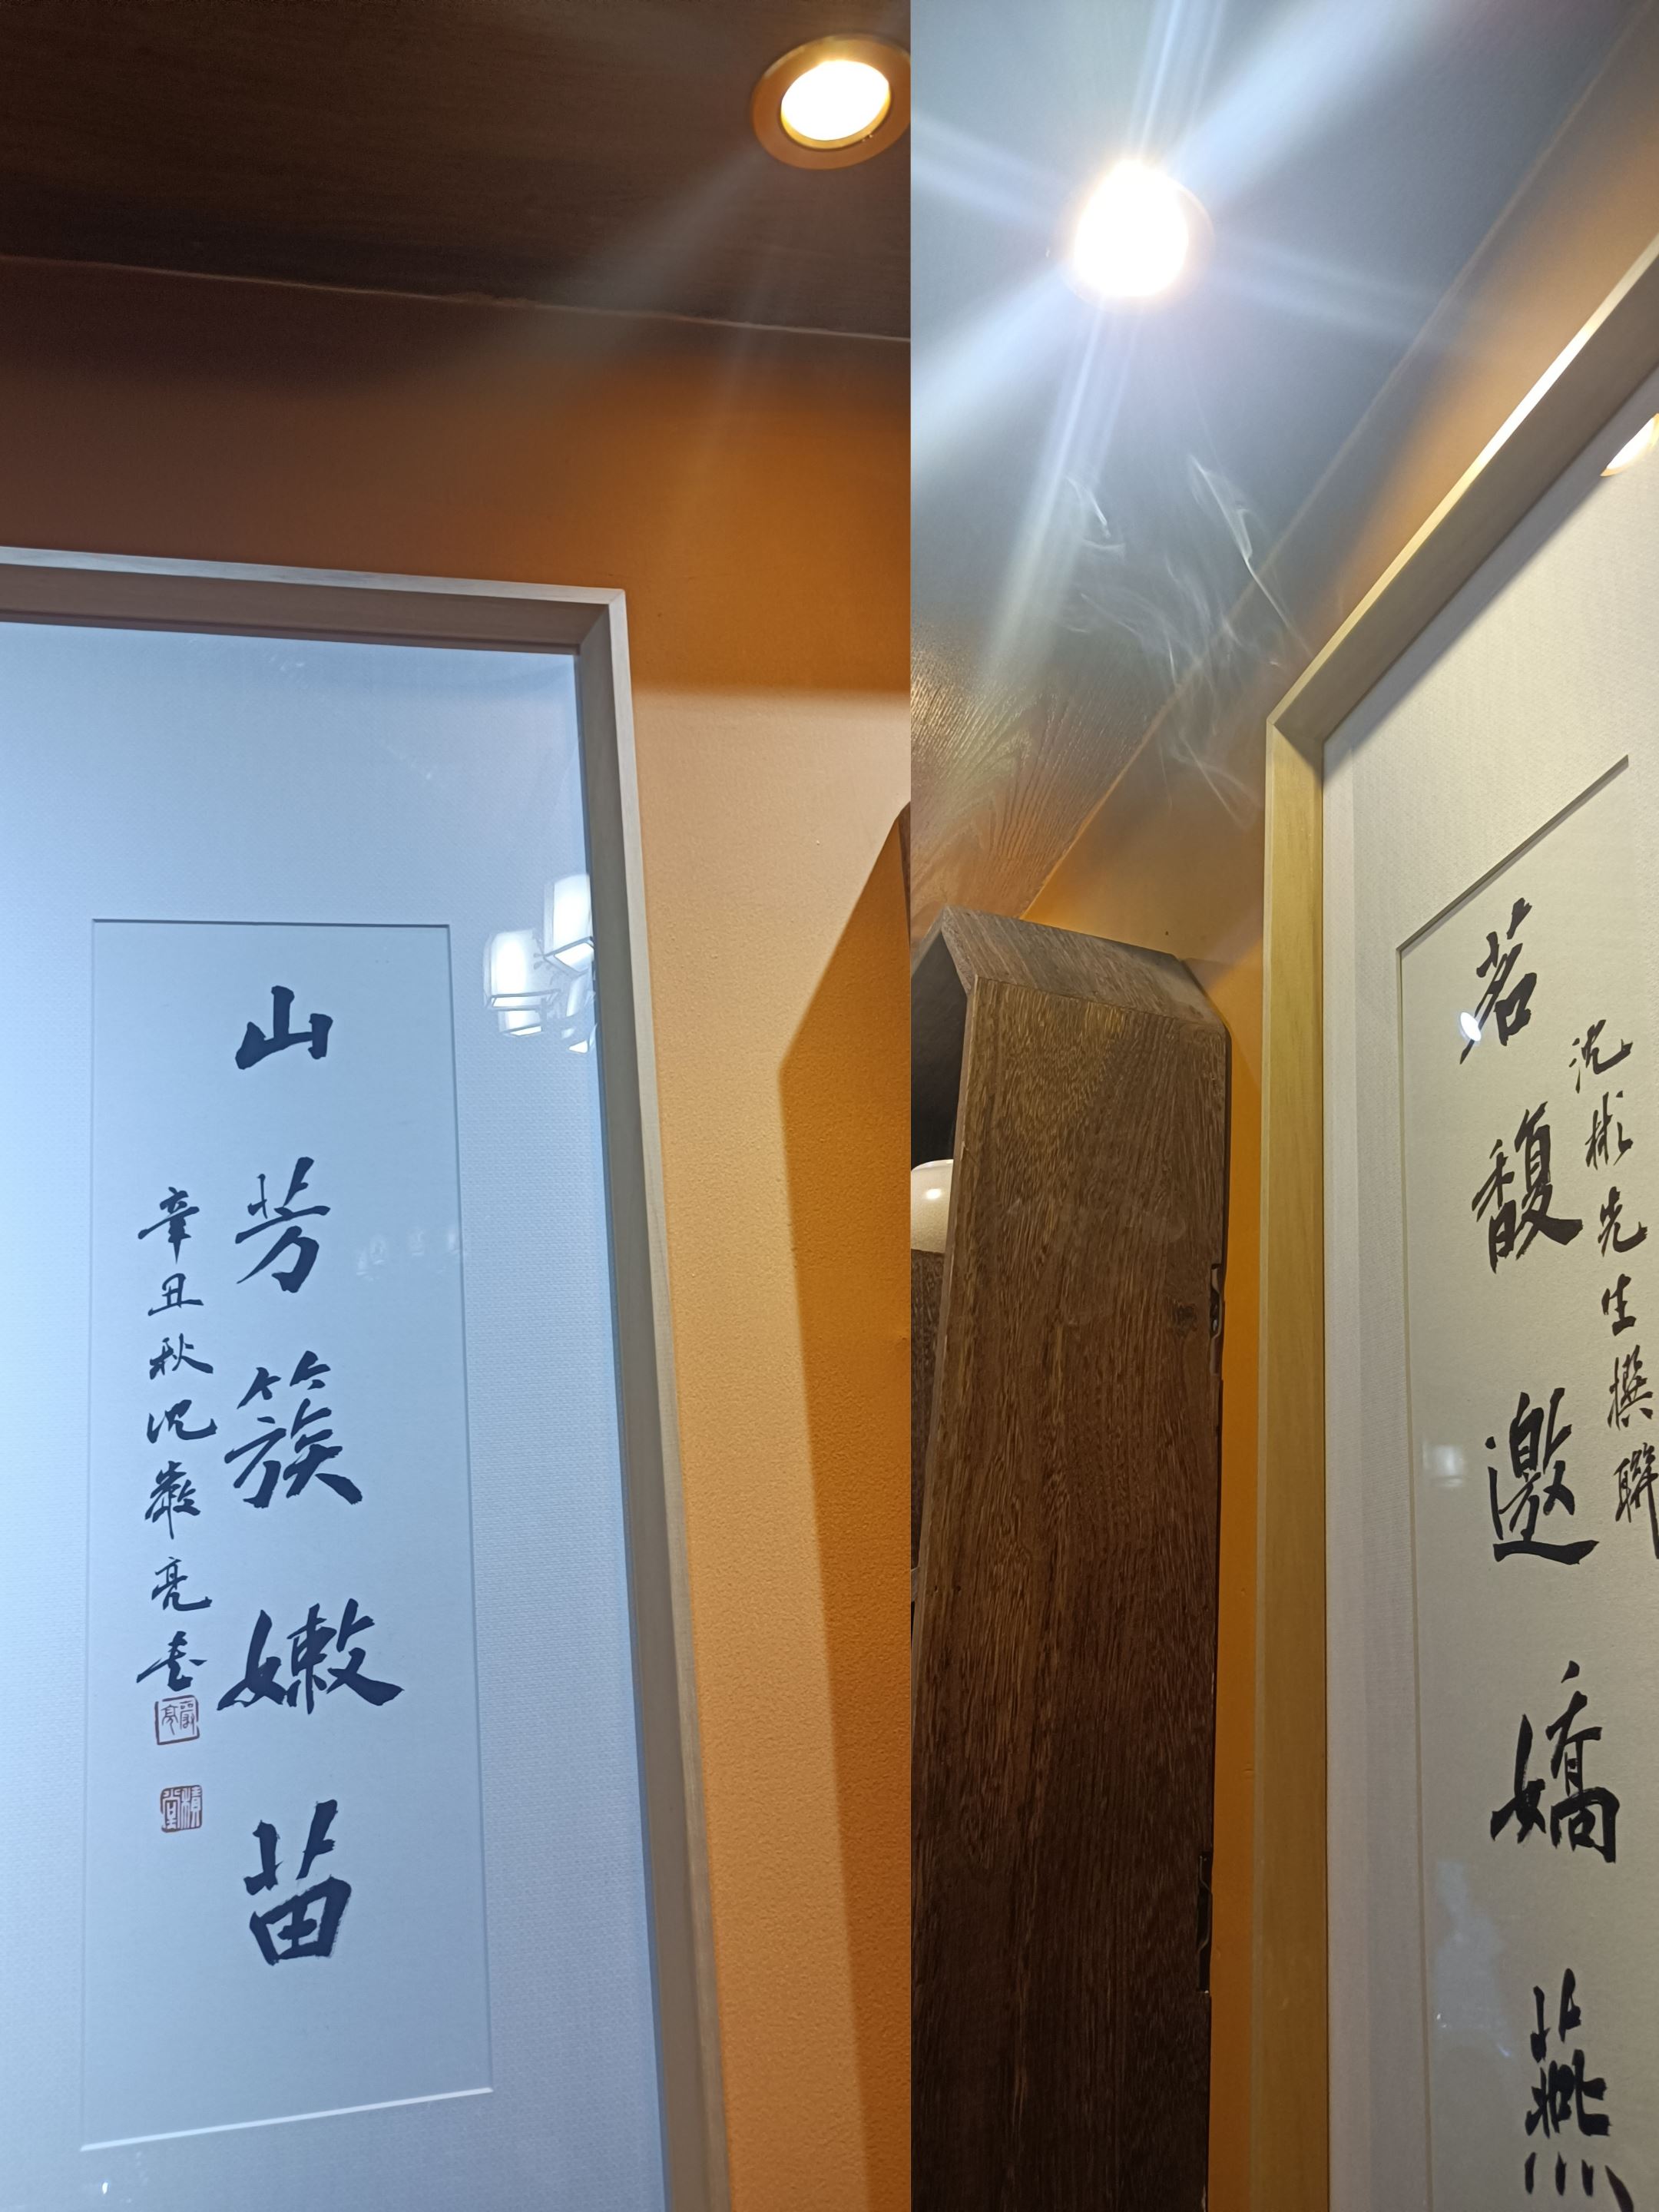 沈彬先生撰聯
茗馥邀嬌燕
山芳簇嫩苗
辛丑秋沈嚴亮書
嚴亮
積堂